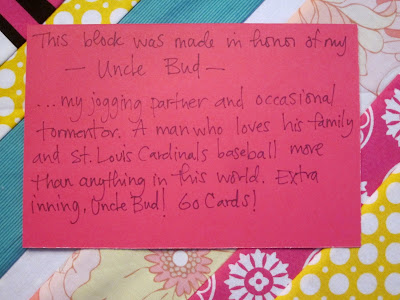 This block was made in honor of my
— Uncle Bud —
...my jogging partner and occasional
tormentor. A man who loves his family
and St. Louis Cardinals baseball more
than anything in this world. Extra
inning, Uncle Bud! Go Cards!